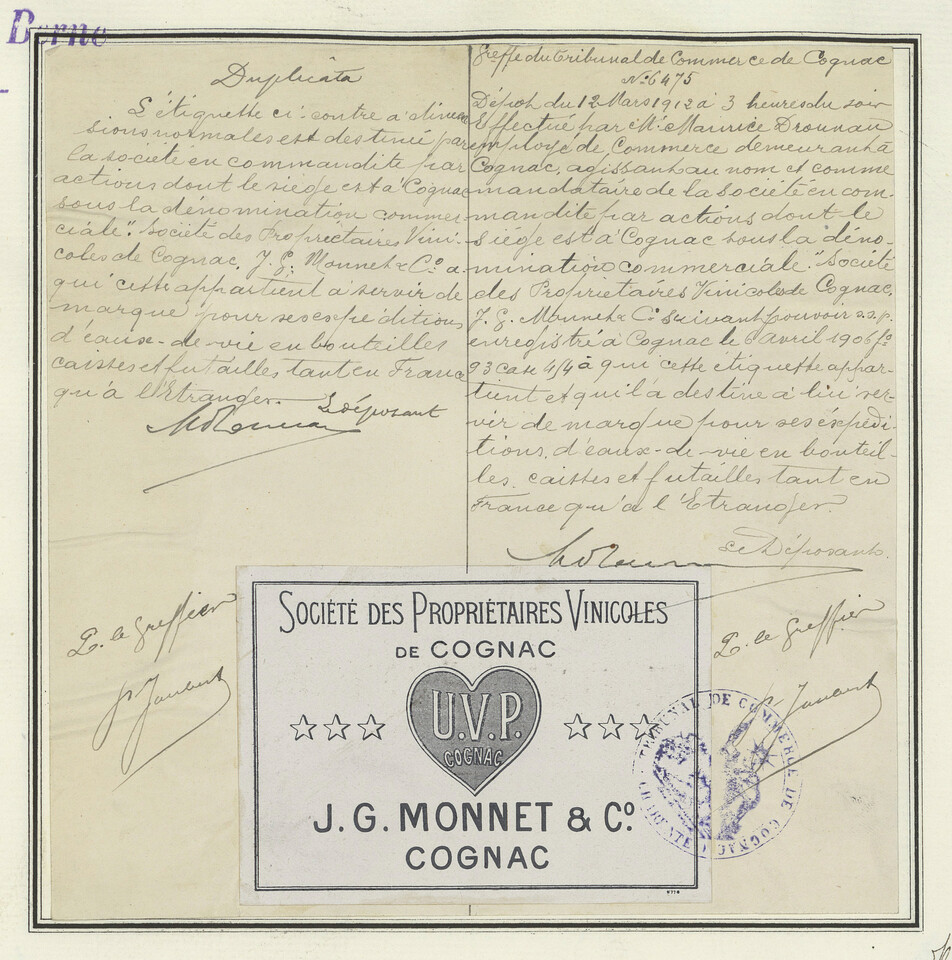 Berne
Duplicata
L'étiquette ci-contre a dimen
sions normales est destiné par
la société en commandite par
actions dont le siège est à Cognac
sous la dénomination commer-
ciale "Société des Propriétaires Vini-
coles de Cognac, J. G. Monnet & Co. a
qui cette appartient à servir de
marque pour ses expéditions
d'eaux-de-vie en bouteilles
caisses et futailles tant en France
qu'à l'Etranger.
Le déposant
P. le Greffier
Greffe du Tribunal de Commerce de Cognac
No 6475
Dépôt du 12 Mars 1912 à 3 heures du soir
Effectué par Mr. Maurice Drounau
employé de Commerce demeurant à
Cognac, agissant au nom et comme
mandataire de la Société en com-
mandite par actions dont le
siège est à Cognac sous la déno-
mination commerciale "Société
des Propriétaires Vinicoles de Cognac,
J. G. Monnet & Co. suivant pouvoir s.s.p.
enregistré à Cognac le 6 avril 1906 fo
93 case 4/4 à qui cette étiquette appar-
tient et qui l'a destine à lui ser-
vir de marque pour ses expédi-
tions d'eaux-de-vie en bouteil-
les, caisses et futailles tant en
France qu'à l'Etranger.
Le Déposant.
P. le Greffier
SOCIÉTÉ DES PROPRIÉTAIRES VINICOLES
DE COGNAC
U.V.P.
COGNAC
J.G. MONNET & Co.
COGNAC
TRIBUNAL DE COMMERCE DE COGNAC
CHARENTE